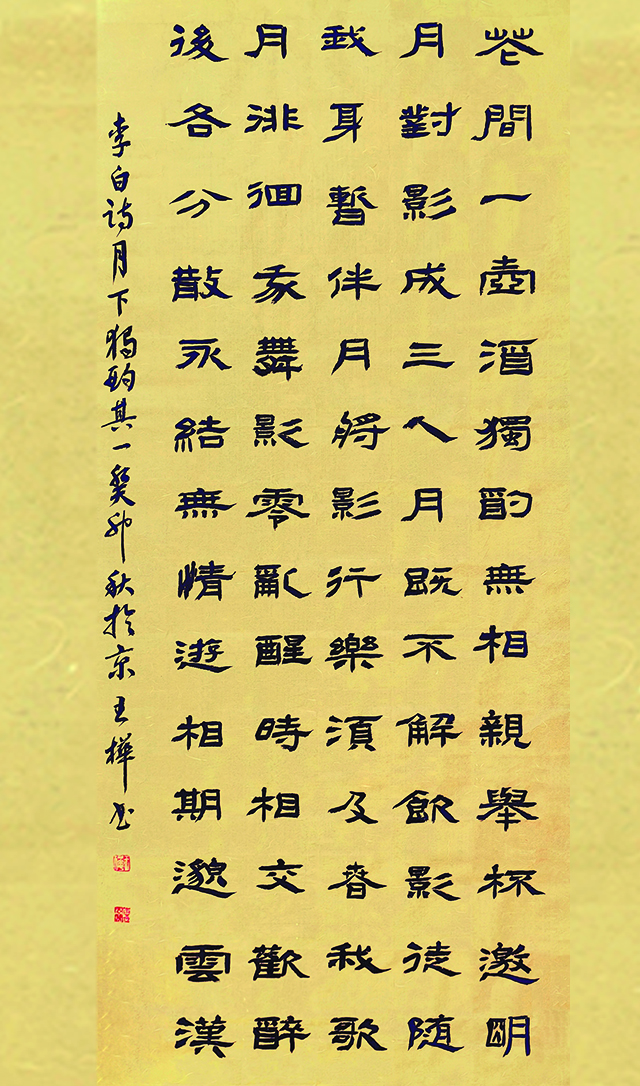 花間一壺酒獨酌無相親舉杯邀明
月對影成三人月既不解飲影徒隨
我身暫伴月將影行樂須及春我歌
月徘徊我舞影零亂醒時相交歡醉
後各分散永結無情遊相期邈雲漢
李白诗月下獨酌其一癸卯秋於京王樺书